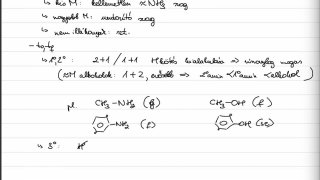 kis M: kellemetlen ~NH₃ szag
nagyobb M: undorító szag
nem illékonyak: szt.
- tq, fq
1°, 2°: 2+1 / 1+1 H kötés kialakítása ⇒ viszonylag magas
(≈M alkoholok: 1+2, erősebb ⇒ 2°amin < 1°amin < alkohol)
pl. CH₃-NH₂ (g) CH₃-OH (f)
-NH₂ (f) -OH (sz)
3°: